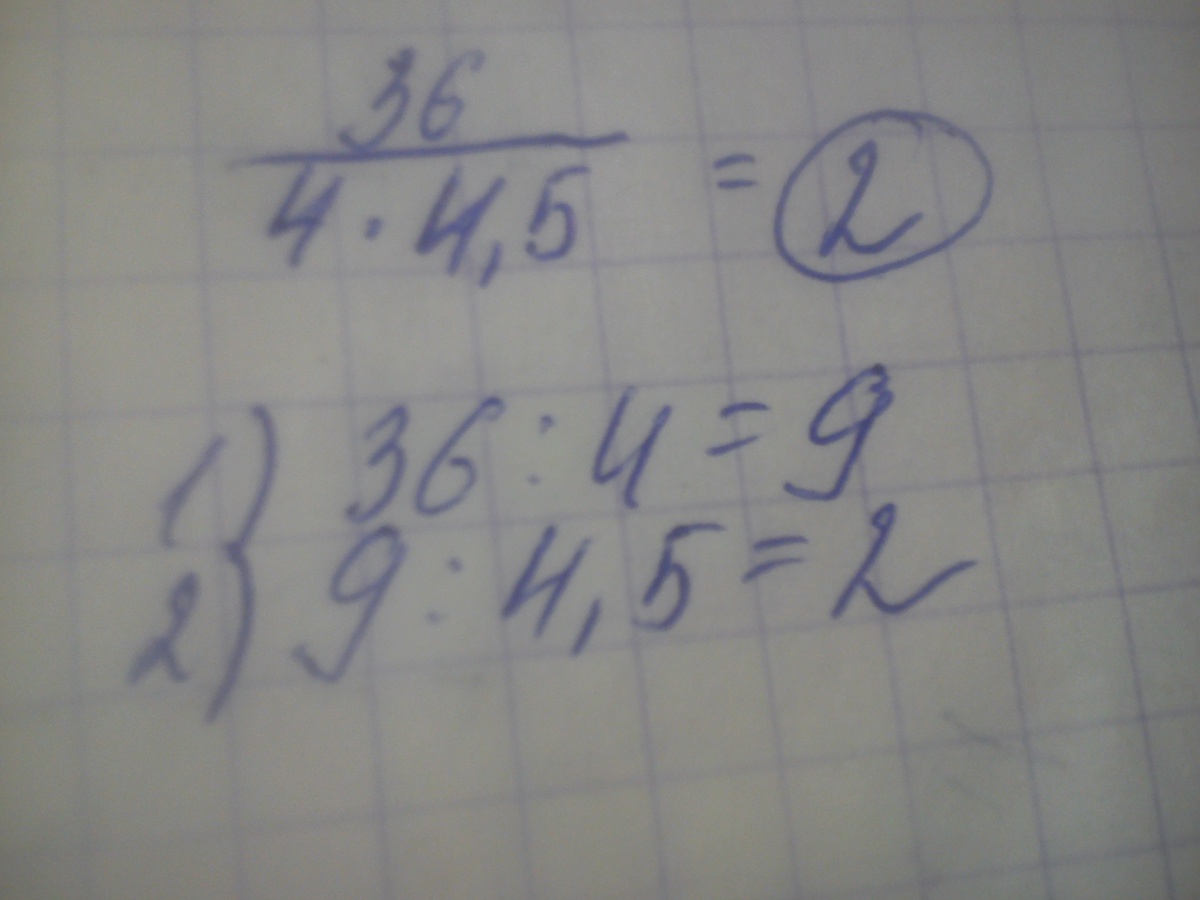 36
4 · 4,5 = 2
1) 36 : 4 = 9
2) 9 : 4,5 = 2